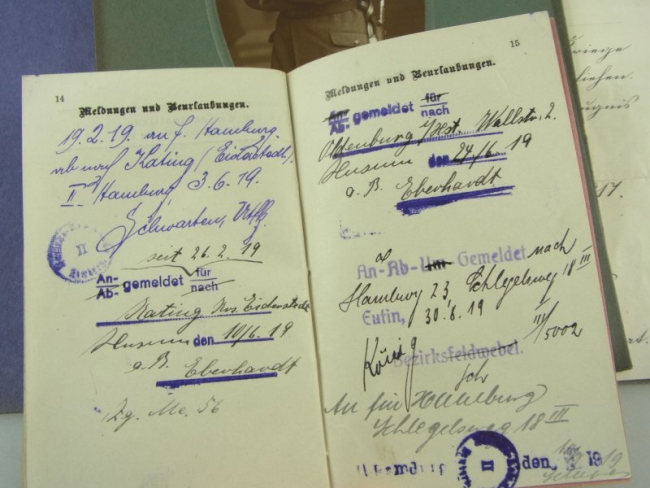 14
Meldungen und Beurlaubungen.
19.2.19. an f. Hamburg.
ab nach Kating (Eiderstedt)
II Hamburg, 3.6.19.
Schwarten,
seit 26.2.19
An- gemeldet für
Ab- nach
Kating Krs. Eiderstedt
Husum den 10/6.19
a.B. Eberhardt
Zg. Me. 56
15
Meldungen und Beurlaubungen.
An- gemeldet für
Ab- nach
Oldenburg Wallstr. 2
Husum den 24/6.19
a.B. Eberhardt
An-Ab-Um-Gemeldet nach
Hamburg 23 Schlegelsweg 18 III
Eutin, 30.6.19
III/5002
König
Bezirksfeldwebel.
An für Hamburg
Schlegelsweg 18 III
II
den 19